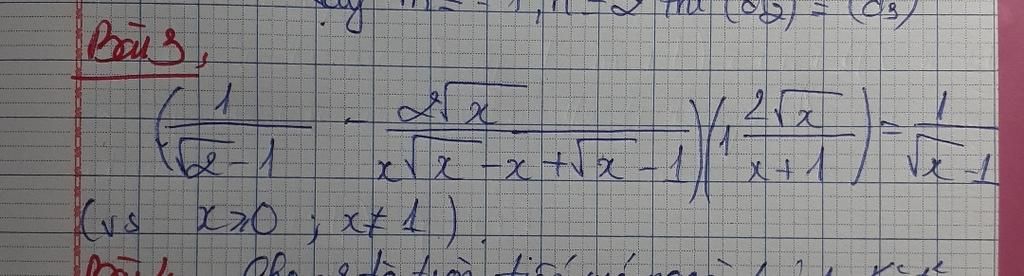 m = -1, n = 2 thì (d2) = (d3)
Bài 3,
(1/(√x - 1) - 2√x/(x√x - x + √x - 1))(1 2√x/(x + 1)) = 1/(√x - 1)
(vs x ≥ 0 ; x ≠ 1).
Bài